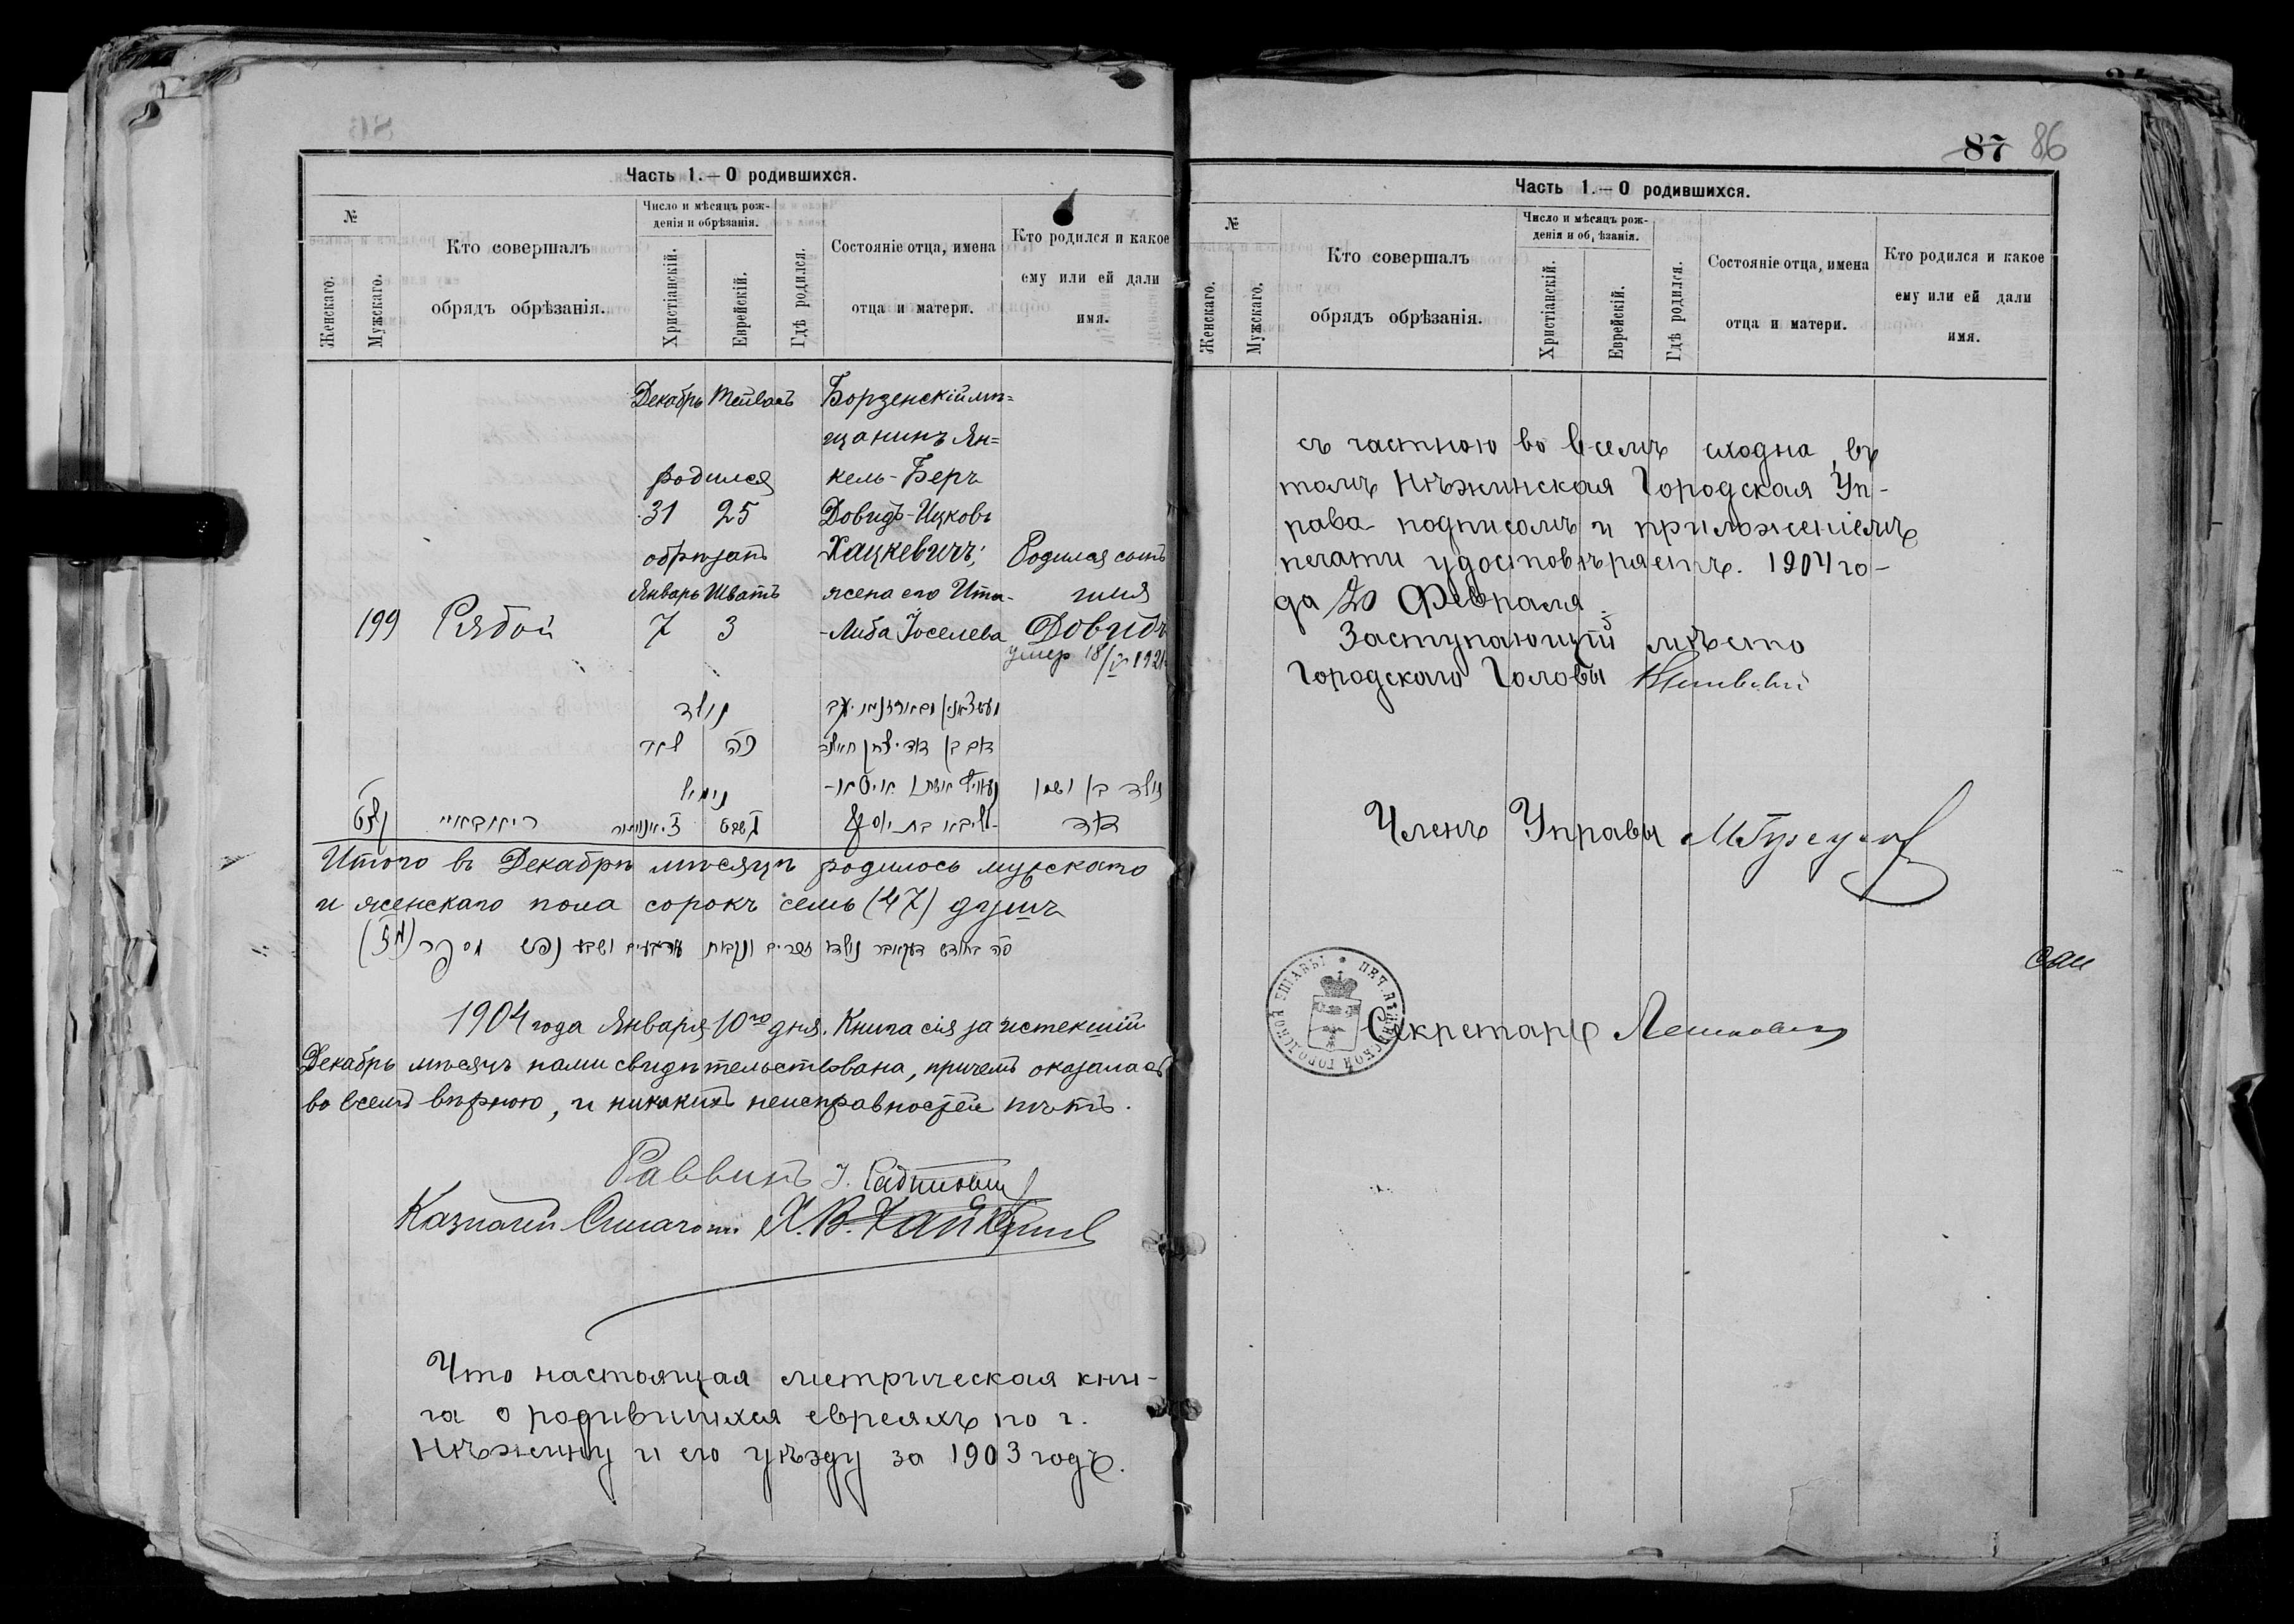 Часть 1.—О родившихся.
№
Женскаго.
Мужскаго.
Кто совершалъ
обрядъ обрѣзанія.
Число и мѣсяцъ рож-
денія и обрѣзанія.
Христіанскій.
Еврейскій.
Гдѣ родился.
Состояніе отца, имена
отца и матери.
Кто родился и какое
ему или ей дали
имя.
Декабрь Тейвасъ Борзенскій мѣ=
щанинъ Ян=
родился кель-Беръ
31 25 Довидъ-Ицковъ
обрѣзанъ Хацкевичъ; Родился сынъ
Январь Шватъ жена его Ита- имя
199 Рябой 7 3 -Либа Іоселева Довидъ
умер 18/ 1921
נולד
נולד בן ושמו
נימול
דוד
Итого въ Декабрѣ мѣсяцѣ родилось мужскаго
и женскаго пола сорокъ семь (47) душъ
סה בחודש דעקאבר נולדו זכרים ונקבות ארבעים ושבע נפש מספר (מ״ז)
1904 года Января 10го дня. Книга сія за истекшій
Декабрь мѣсяцъ нами свидѣтельствована, причемъ оказалась
во всемъ вѣрною, и никакихъ неисправностей нѣтъ.
Раввинъ
Казначей
Что настоящая метрическая кни-
га о родившихся евреяхъ по г.
Нѣжину и его уѣзду за 1903 годъ.
87 86
Часть 1.—О родившихся.
№
Женскаго.
Мужскаго.
Кто совершалъ
обрядъ обрѣзанія.
Число и мѣсяцъ рож-
денія и об,ѣзанія.
Христіанскій.
Еврейскій.
Гдѣ родился.
Состояніе отца, имена
отца и матери.
Кто родился и какое
ему или ей дали
имя.
съ частною во всемъ сходна, въ
томъ Нѣжинская Городская Уп-
рава подписомъ и приложеніемъ
печати удостовѣряетъ. 1904 го-
да 20 Февраля.
Заступающій мѣсто
Городского Головы
Членъ Управы
Секретарь